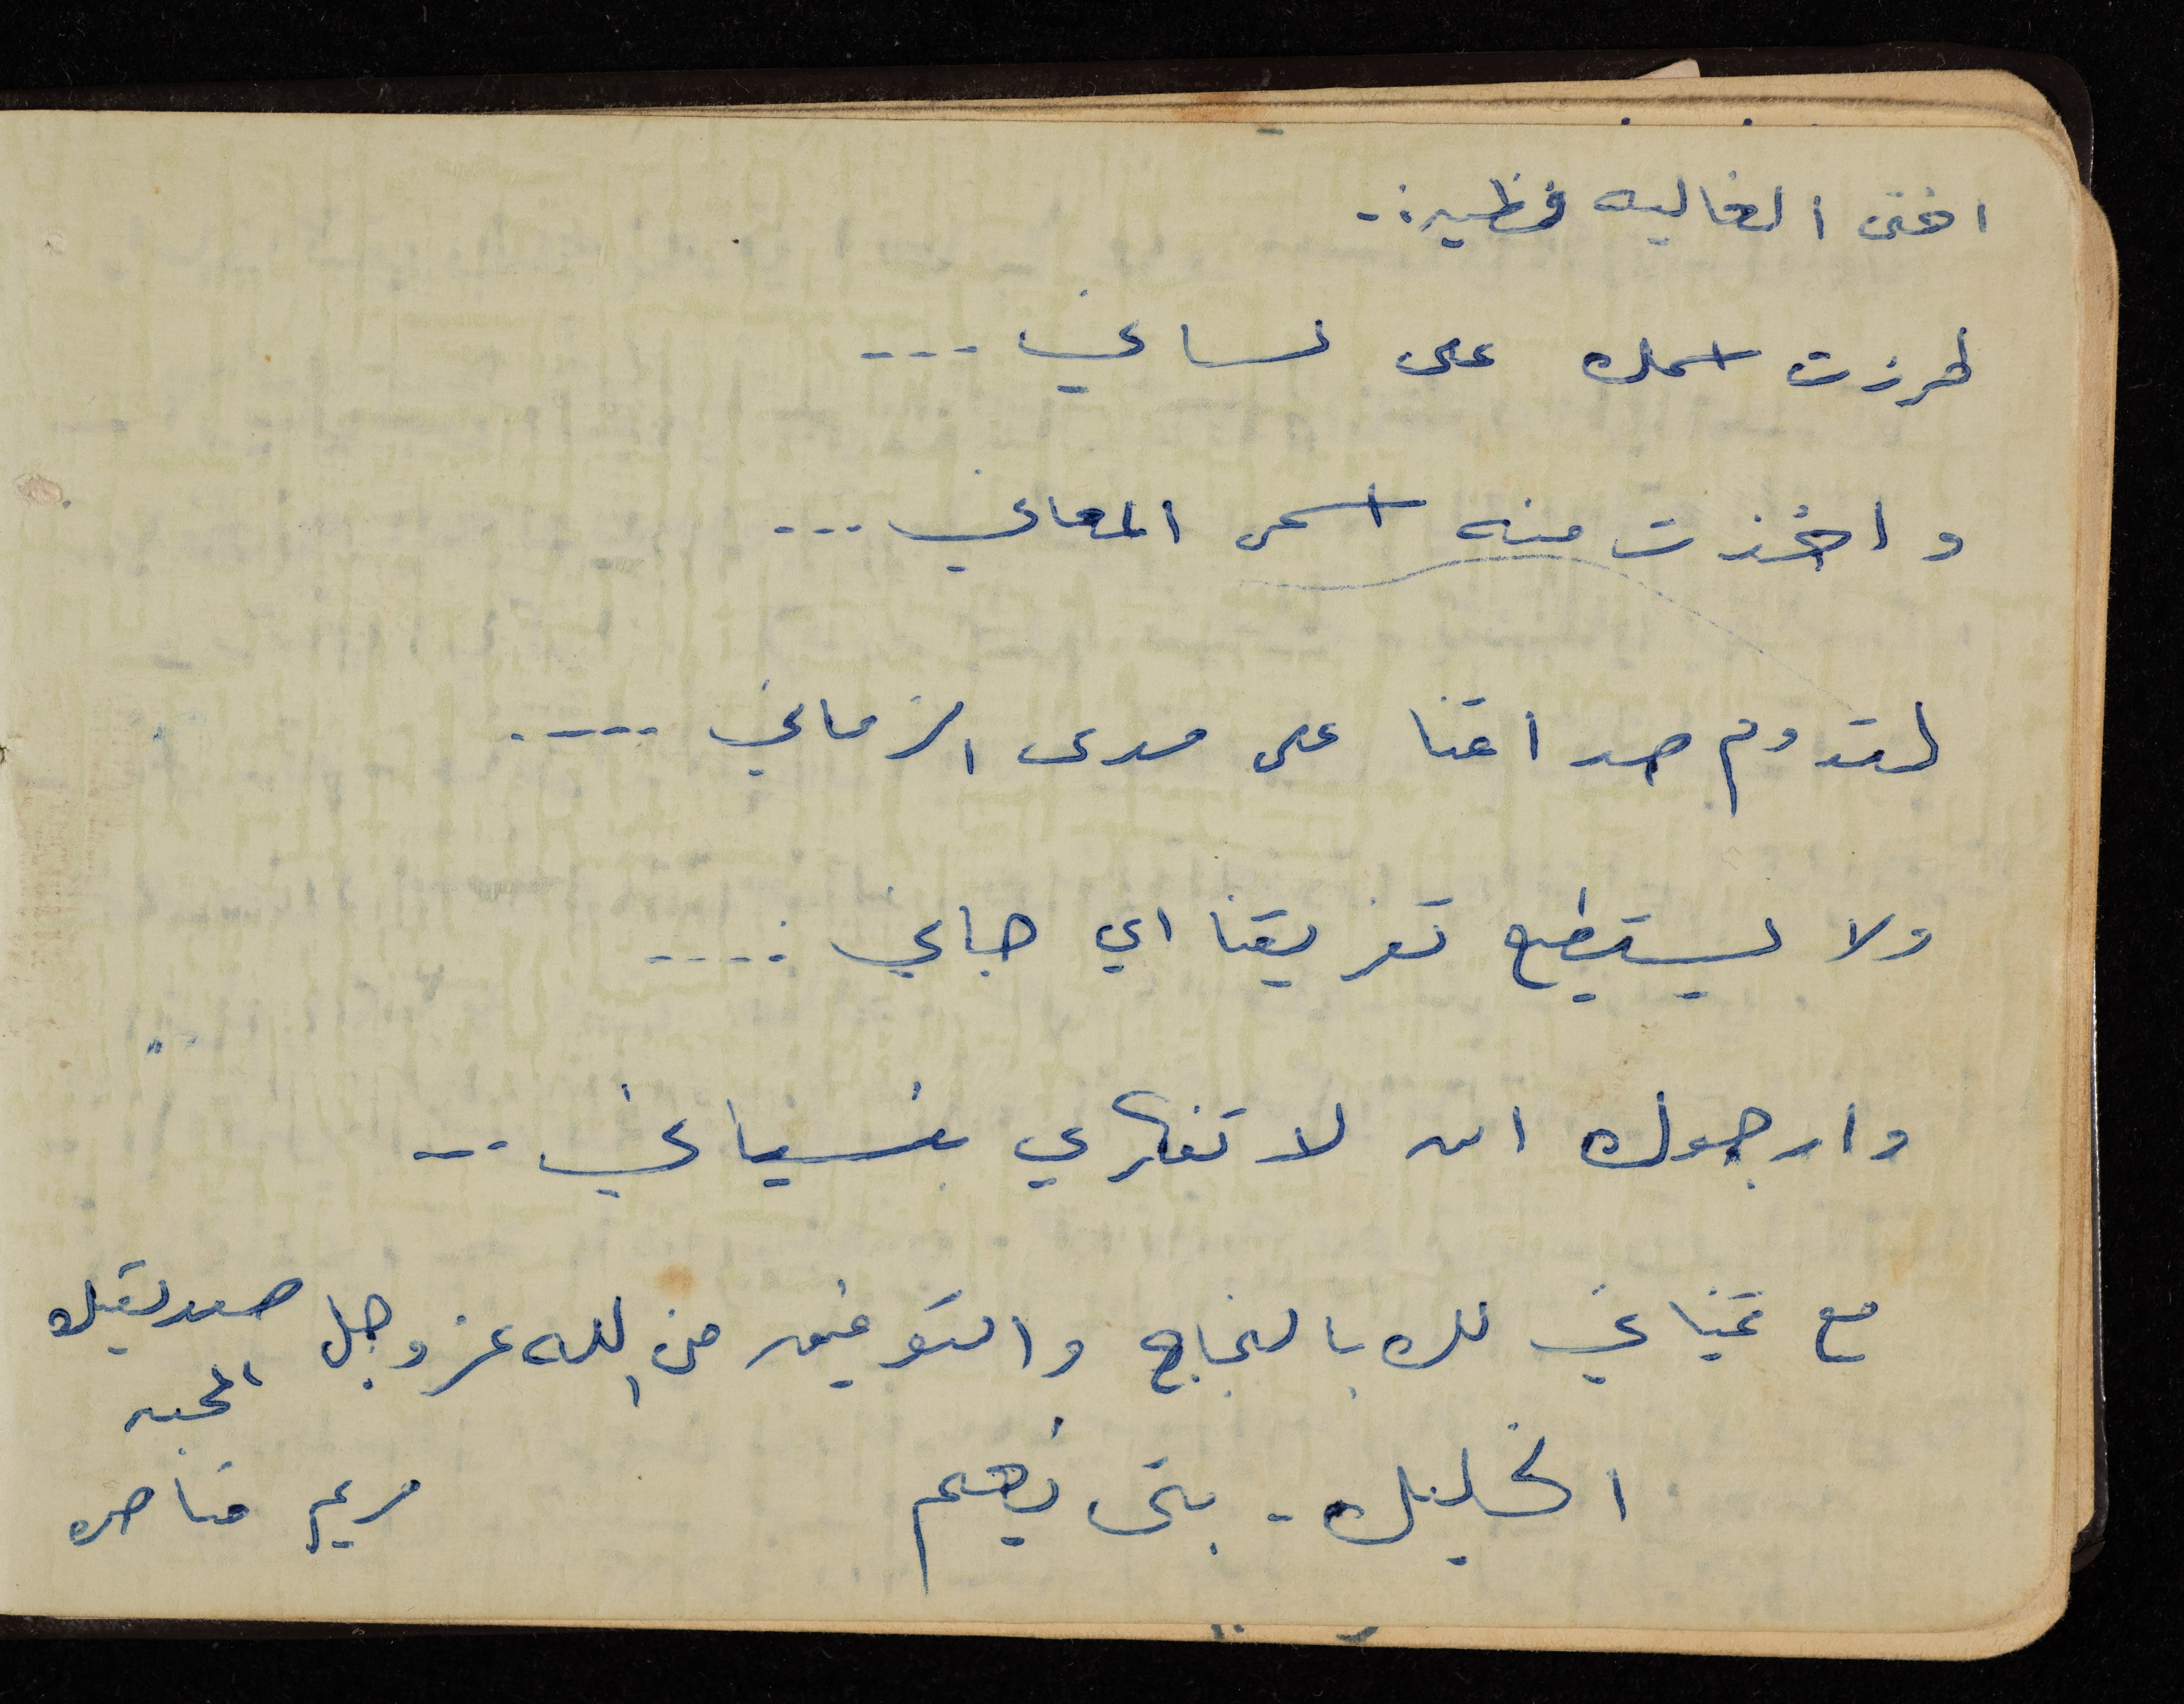 اختى الغاليه نظيره:-
طرزت اسمك على لساني ---
واخذت منه اسمى المعاني ---
لتدوم صداقتنا على مدى الزماني -----
ولا يستطيع تفريقنا اي جاني :----
وارجوك ان لا تفكري بنسياني ---
مع تمنياتي لك بالنجاح والتوفيق من الله عز وجل صديقتك
المحبه
الخليل - بنى نعيم مريم مناصره